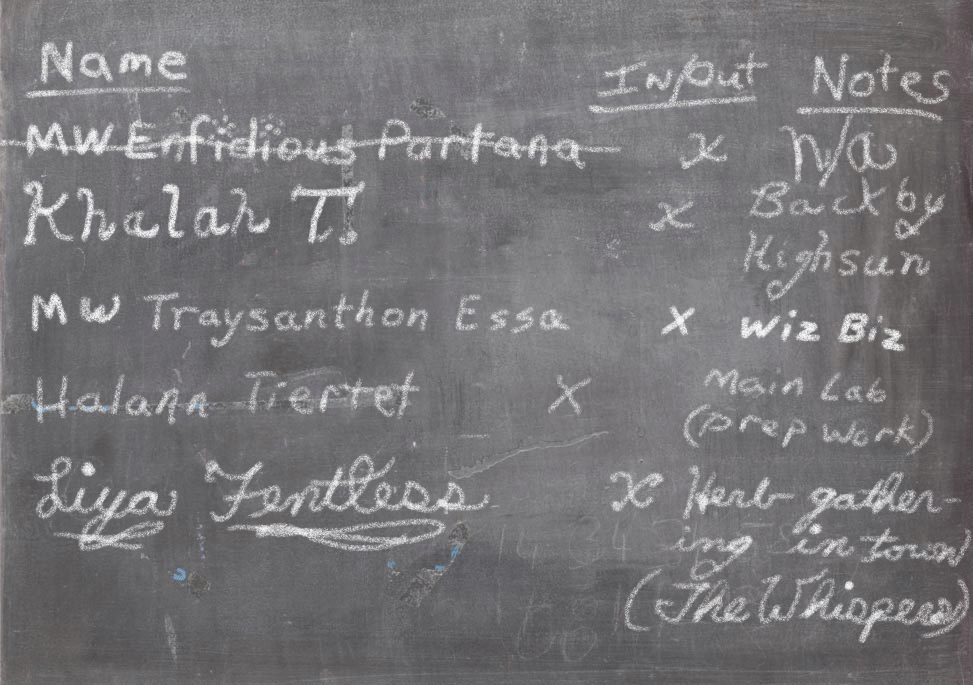 Name Input Notes
MW Enfidious Partana x n/a
Khalah T! x Back by
Highsun
MW Traysanthon Essa x Wiz Biz
Halann Tiertet X Main Lab
(prep work)
Liya Fentless x Herb gather-
ing in town
(The Whispers)